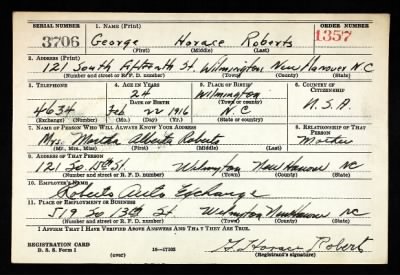 SERIAL NUMBER 1. NAME (Print) ORDER NUMBER
3706 George Horace Roberts 1357
(First) (Middle) (Last)
2. ADDRESS (Print)
121 South Fifteenth St. Wilmington New Hanover N C
(Number and street or R. F. D. number) (Town) (County) (State)
3. TELEPHONE 4. AGE IN YEARS 5. PLACE OF BIRTH 6. COUNTRY OF CITIZENSHIP
24 Wilmington
DATE OF BIRTH (Town or county)
4634 Feb 22 1916 N C U.S.A.
(Exchange) (Number) (Mo.) (Day) (Yr.) (State or country)
7. NAME OF PERSON WHO WILL ALWAYS KNOW YOUR ADDRESS 8. RELATIONSHIP OF THAT PERSON
Mrs. Martha Alberta Roberts Mother
(Mr., Mrs., Miss) (First) (Middle) (Last)
9. ADDRESS OF THAT PERSON
121 So 15th St Wilmington New Hanover NC
(Number and street or R. F. D. number) (Town) (County) (State)
10. EMPLOYER'S NAME
Roberts Auto Exchange
11. PLACE OF EMPLOYMENT OR BUSINESS
519 So 13th St. Wilmington New Hanover NC
(Number and street or R. F. D. number) (Town) (County) (State)
I AFFIRM THAT I HAVE VERIFIED ABOVE ANSWERS AND THAT THEY ARE TRUE.
REGISTRATION CARD
D. S. S. Form 1 16—17105 G. Horace Roberts
(over) (Registrant's signature)